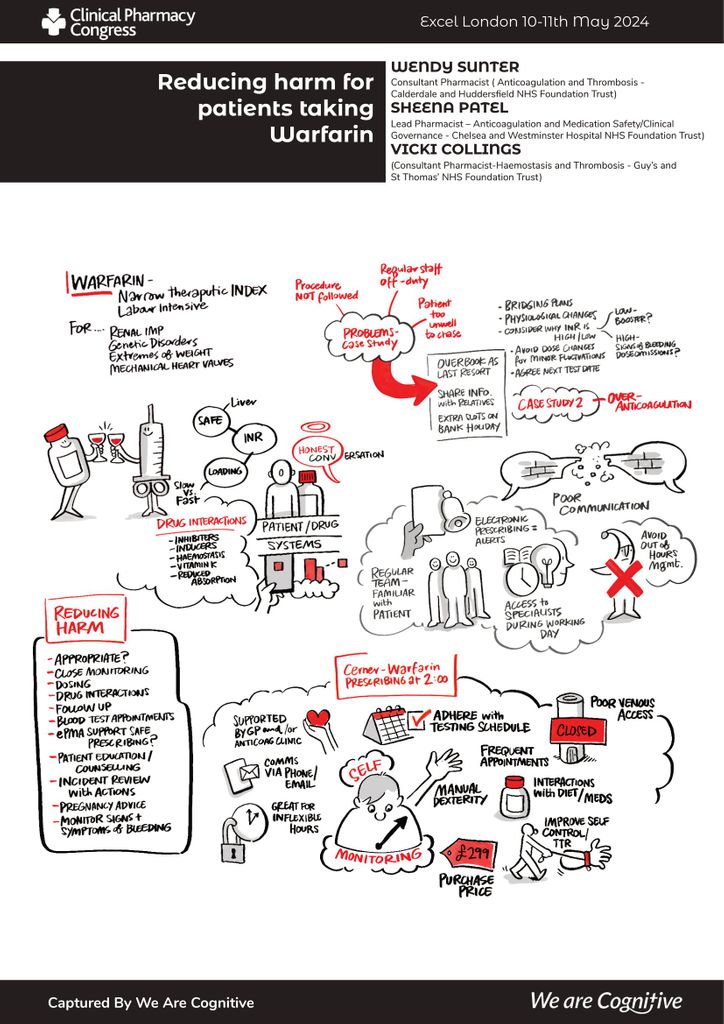 Clinical Pharmacy
Congress
Excel London 10-11th May 2024
Reducing harm for
patients taking
Warfarin
WENDY SUNTER
Consultant Pharmacist ( Anticoagulation and Thrombosis -
Calderdale and Huddersfield NHS Foundation Trust)
SHEENA PATEL
Lead Pharmacist – Anticoagulation and Medication Safety/Clinical
Governance - Chelsea and Westminster Hospital NHS Foundation Trust)
VICKI COLLINGS
(Consultant Pharmacist-Haemostasis and Thrombosis - Guy's and
St Thomas' NHS Foundation Trust)
WARFARIN -
Narrow theraputic INDEX
Labour Intensive
FOR....
RENAL IMP
Genetic Disorders
Extremes of WEIGHT
MECHANICAL HEART VALVES
Procedure
NOT followed
Regular staff
off-duty
Patient
too
unwell
to chase
PROBLEMS-
Case Study
OVERBOOK AS
LAST RESORT
SHARE INFO.
with RELATIVES
EXTRA SLOTS ON
BANK HOLIDAY
- BRIDGING PLANS
- PHYSIOLOGICAL CHANGES
- CONSIDER WHY INR is
HIGH/LOW
LOW-
BOOSTER?
HIGH-
SIGNS of BLEEDING
DOSE OMISSIONS?
- AVOID DOSE CHANGES
for MINOR FLUCTUATIONS
- AGREE NEXT TEST DATE
CASE STUDY 2 - OVER-
ANTICOAGULATION
Liver
SAFE
INR
LOADING
Slow
VS.
Fast
HONEST
CONVERSATION
DRUG INTERACTIONS
- INHIBITERS
- INDUCERS
- HAEMOSTASIS
- VITAMIN K
- REDUCED
ABSORPTION
PATIENT/DRUG
SYSTEMS
POOR
COMMUNICATION
ELECTRONIC
PRESCRIBING =
ALERTS
REGULAR
TEAM-
FAMILIAR
with
PATIENT
ACCESS to
SPECIALISTS
DURING WORKING
DAY
AVOID
OUT of
HOURS
Mgmt.
REDUCING
HARM
- APPROPRIATE?
- CLOSE MONITORING
- DOSING
- DRUG INTERACTIONS
- FOLLOW UP
- BLOOD TEST APPOINTMENTS
- ePMA SUPPORT SAFE
PRESCRIBING?
- PATIENT EDUCATION/
COUNSELLING
- INCIDENT REVIEW
with ACTIONS
- PREGNANCY ADVICE
- MONITOR SIGNS +
SYMPTOMS of BLEEDING
Cerner-Warfarin
PRESCRIBING at 2:00
SUPPORTED
BY GP and/or
ANTICOAG CLINIC
COMMS
VIA PHONE/
EMAIL
GREAT FOR
INFLEXIBLE
HOURS
ADHERE with
TESTING SCHEDULE
SELF
MONITORING
MANUAL
DEXTERITY
£299
PURCHASE
PRICE
CLOSED
POOR VENOUS
ACCESS
FREQUENT
APPOINTMENTS
INTERACTIONS
with DIET/MEDS
IMPROVE SELF
CONTROL/
TTR
Captured By We Are Cognitive
We are Cognitive